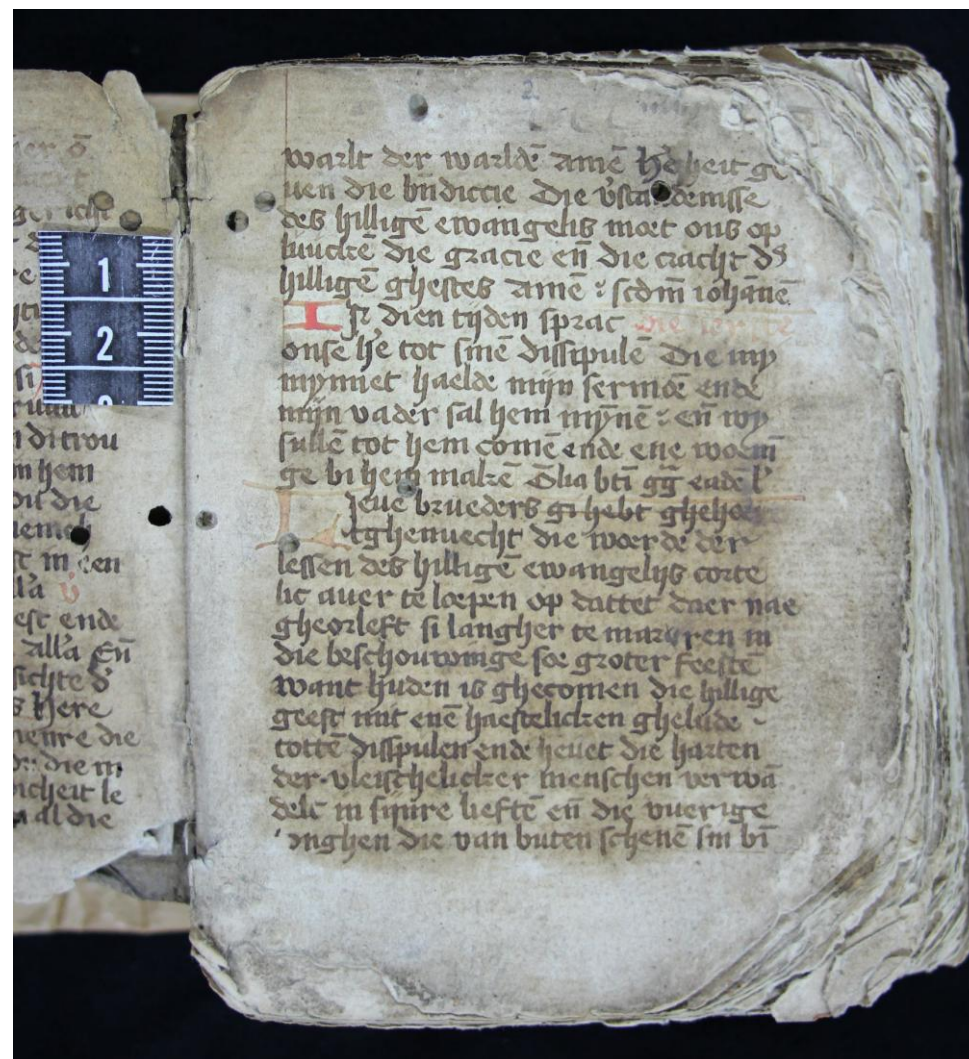 ier ō
gericht
n ditrou
m hem
dit die
nemen
st in een
lla v̄
est ende
alla Eñ
sichte d'
s Here
meure die
die in
icheit le
n al die
1
2
2
warlt der warldē amē He heit ge
uen die bñdictie Die v̄standenisse
des hilligē ewangelis moet ons op
lucktē die gracie eñ die cracht d's
hilligē ghestes amē : scdm̄ iohānē
In dien tyden sprac
onse he tot sinē dissipulē Die my
mynnet haelde mijn sermōe ende
mijn vader sal hem mȳnē : eñ wy
sullē tot hem comē ende ene woenī
ge bi hem makē Ōlia bt̄i gḡ ende l'
Leue brueders gi hebt ghehoert
tghenuecht die woerde der
lessen des hilligē ewangelijs corte
lic auer te loepen op dattet daer nae
gheorleft si langher te marren in
die beschouwinge soe groter feestē
want huden is ghecomen die hillige
geest mit enē haestelicken ghelude
tottē dissipulen ende heuet die harten
der vleischelicker menschen verwā
delt in sijnre lieftē eñ die vuerige
tonghen die van buten schenē sin bī